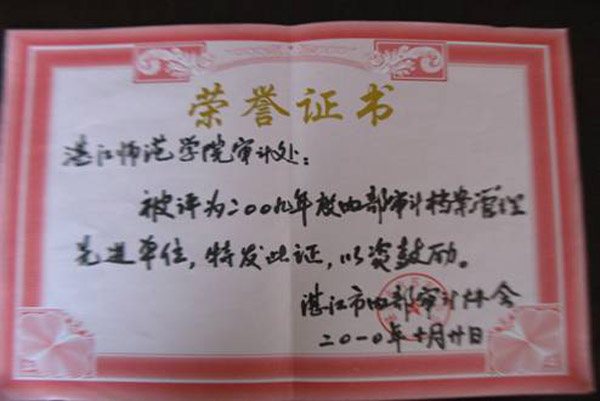 荣誉证书
湛江师范学院审计处：
被评为二00九年度内部审计档案管理
先进单位，特发此证，以资鼓励。
湛江市内部审计协会
二0一0年十月廿日